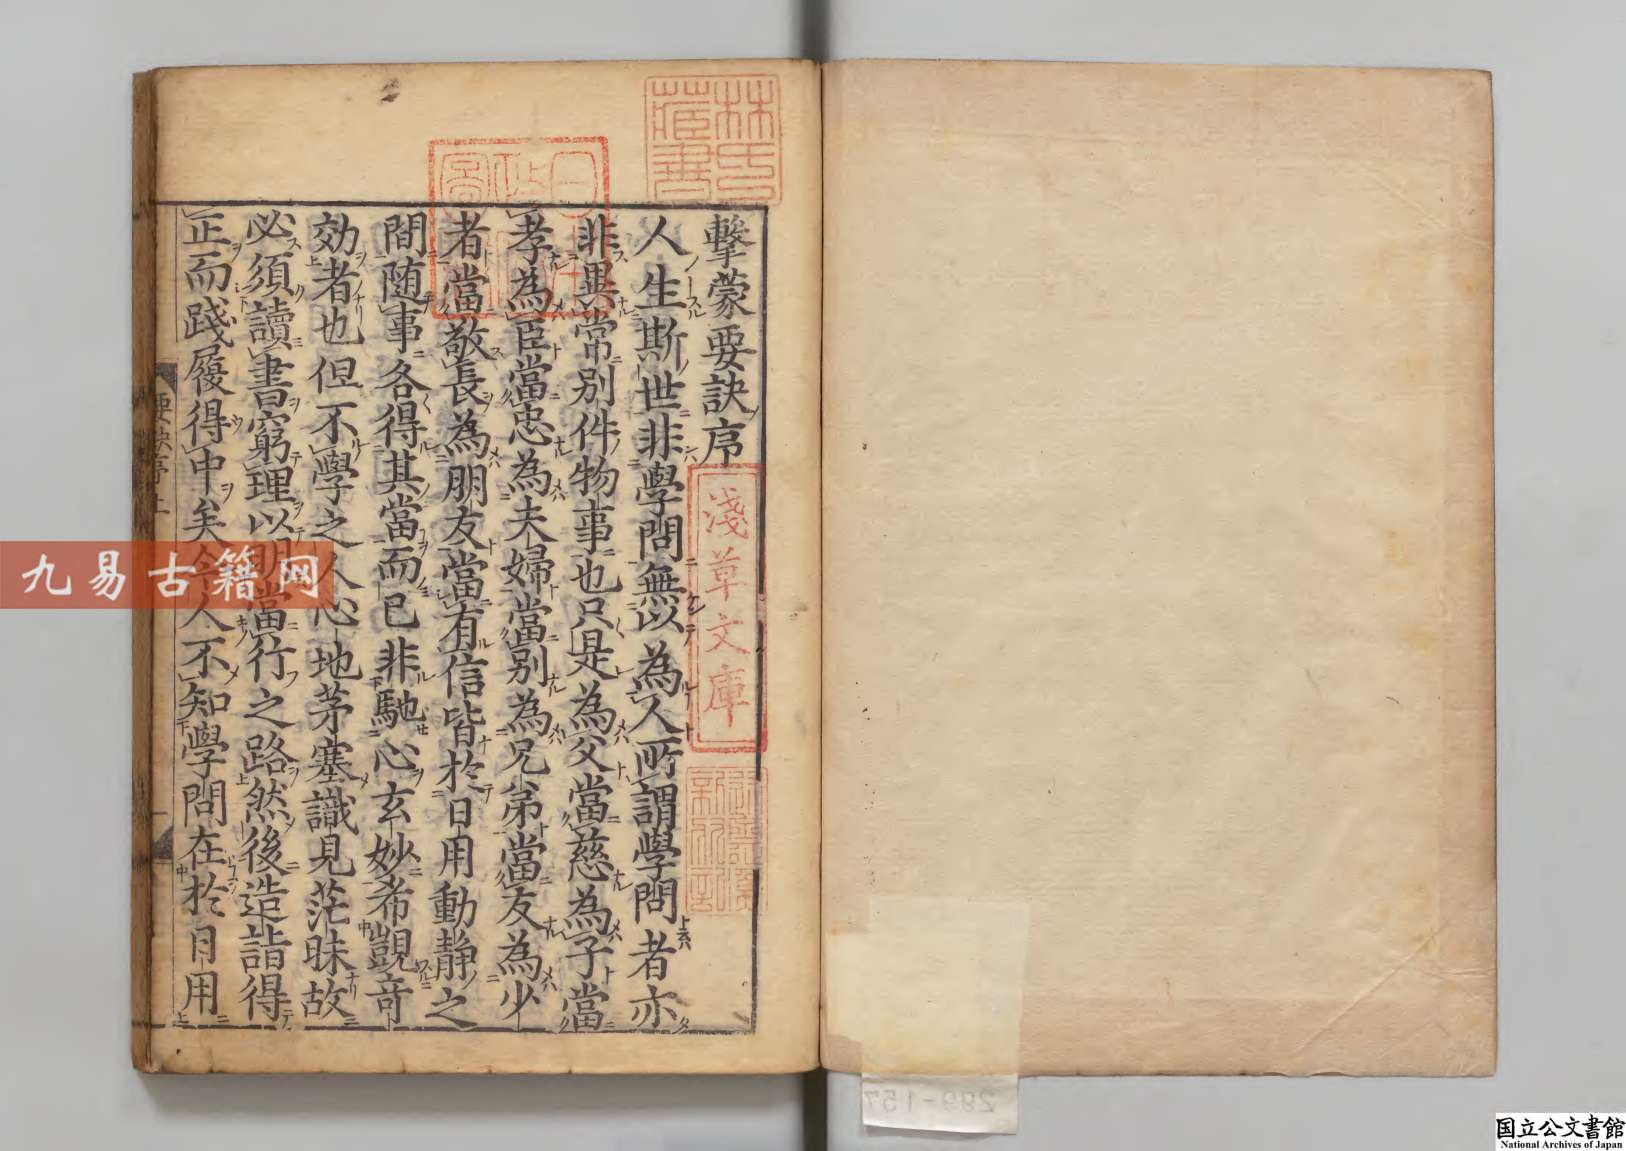 林氏藏書
日本政府圖書
擊蒙要訣序
淺草文庫
人生斯世非學問無以為人所謂學問者亦
非異常別件物事也只是為父當慈為子當
孝為臣當忠為夫婦當別為兄弟當友為少
者當敬長為朋友當有信皆於日用動静之
間随事各得其當而已非馳心玄妙希覬奇
効者也但不學之人心地茅塞識見茫昧故
必須讀書窮理以明當行之路然後造詣得
正而踐履得中矣今人不知學問在於日用
要訣序
九易古籍网
289-157
国立公文書館
National Archives of Japan